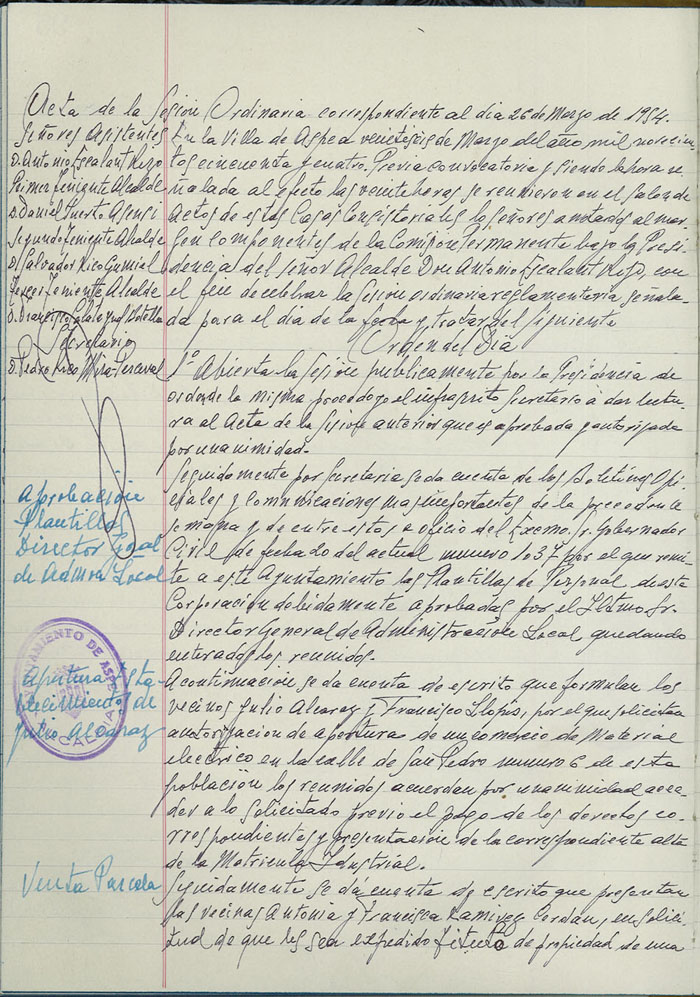 Acta de la Sesion Ordinaria correspondiente al dia 26 de Marzo de 1954.
Señores Asistentes
D. Antonio Escalant Rizo
Primer Teniente Alcalde
D. Daniel Puerto Asensi
Segundo Teniente Alcalde
D. Salvador Rico Gumiel
Tercer Teniente Alcalde
D. Francisco Calatayud Botella
Secretario
D. Pedro Rico Mira-Perceval
En la Villa de Aspe a veinteseis de Marzo del año mil novecien
tos cincuenta y cuatro. Previa convocatoria y siendo la hora se
ñalada al efecto las veinte horas se reunieron en el Salon de
Actos de estas Casas Consistoriales los señores anotados al mar
gen componentes de la Comision Permanente bajo la Presi
dencia del señor Alcalde Don Antonio Escalant Rizo, con
el fin de celebrar la Sesion ordinaria reglamentaria señala
da para el dia de la fecha y tratar del siguiente
Orden del Dia
1º Abierta la Sesion publicamente por la Presidencia de
orden de la misma procedo yo el infrascrito Secretario a dar lectu
ra al Acta de la Sesion anterior que es aprobada y autorizada
por unanimidad.
Aprobacion
Plantillas
Director Gral
de Admon Local
Seguidamente por Secretaria se da cuenta de los Boletines Ofi
ciales y comunicaciones mas importantes de la precedente
semana y de entre estos a oficio del Excmo. Sr. Gobernador
Civil de fecha del actual numero 1037 por el que remi
te a este Ayuntamiento las Plantillas de Personal de esta
Corporacion debidamente aprobadas por el Iltmo Sr.
Director General de Administracion Local quedando
enterados los reunidos.
AYUNTAMIENTO DE ASPE
ALCALDIA
Apertura esta
blecimiento de
Julio Alcaraz
A continuacion se da cuenta de escrito que formulan los
vecinos Julio Alcaraz y Francisco Llopis, por el que solicitan
autorizacion de apertura de un comercio de Material
electrico en la calle de San Pedro numero 6 de esta
poblacion los reunidos acuerdan por unanimidad acce
der a lo solicitado previo el pago de los derechos co
rrespondientes y presentacion de la correspondiente alta
de la Matricula Industrial.
Venta Parcela
Seguidamente se da cuenta de escrito que presentan
las vecinas Antonia y Francisca Ramirez Cerdan, en solici
tud de que les sea expedido titulo de propiedad de una